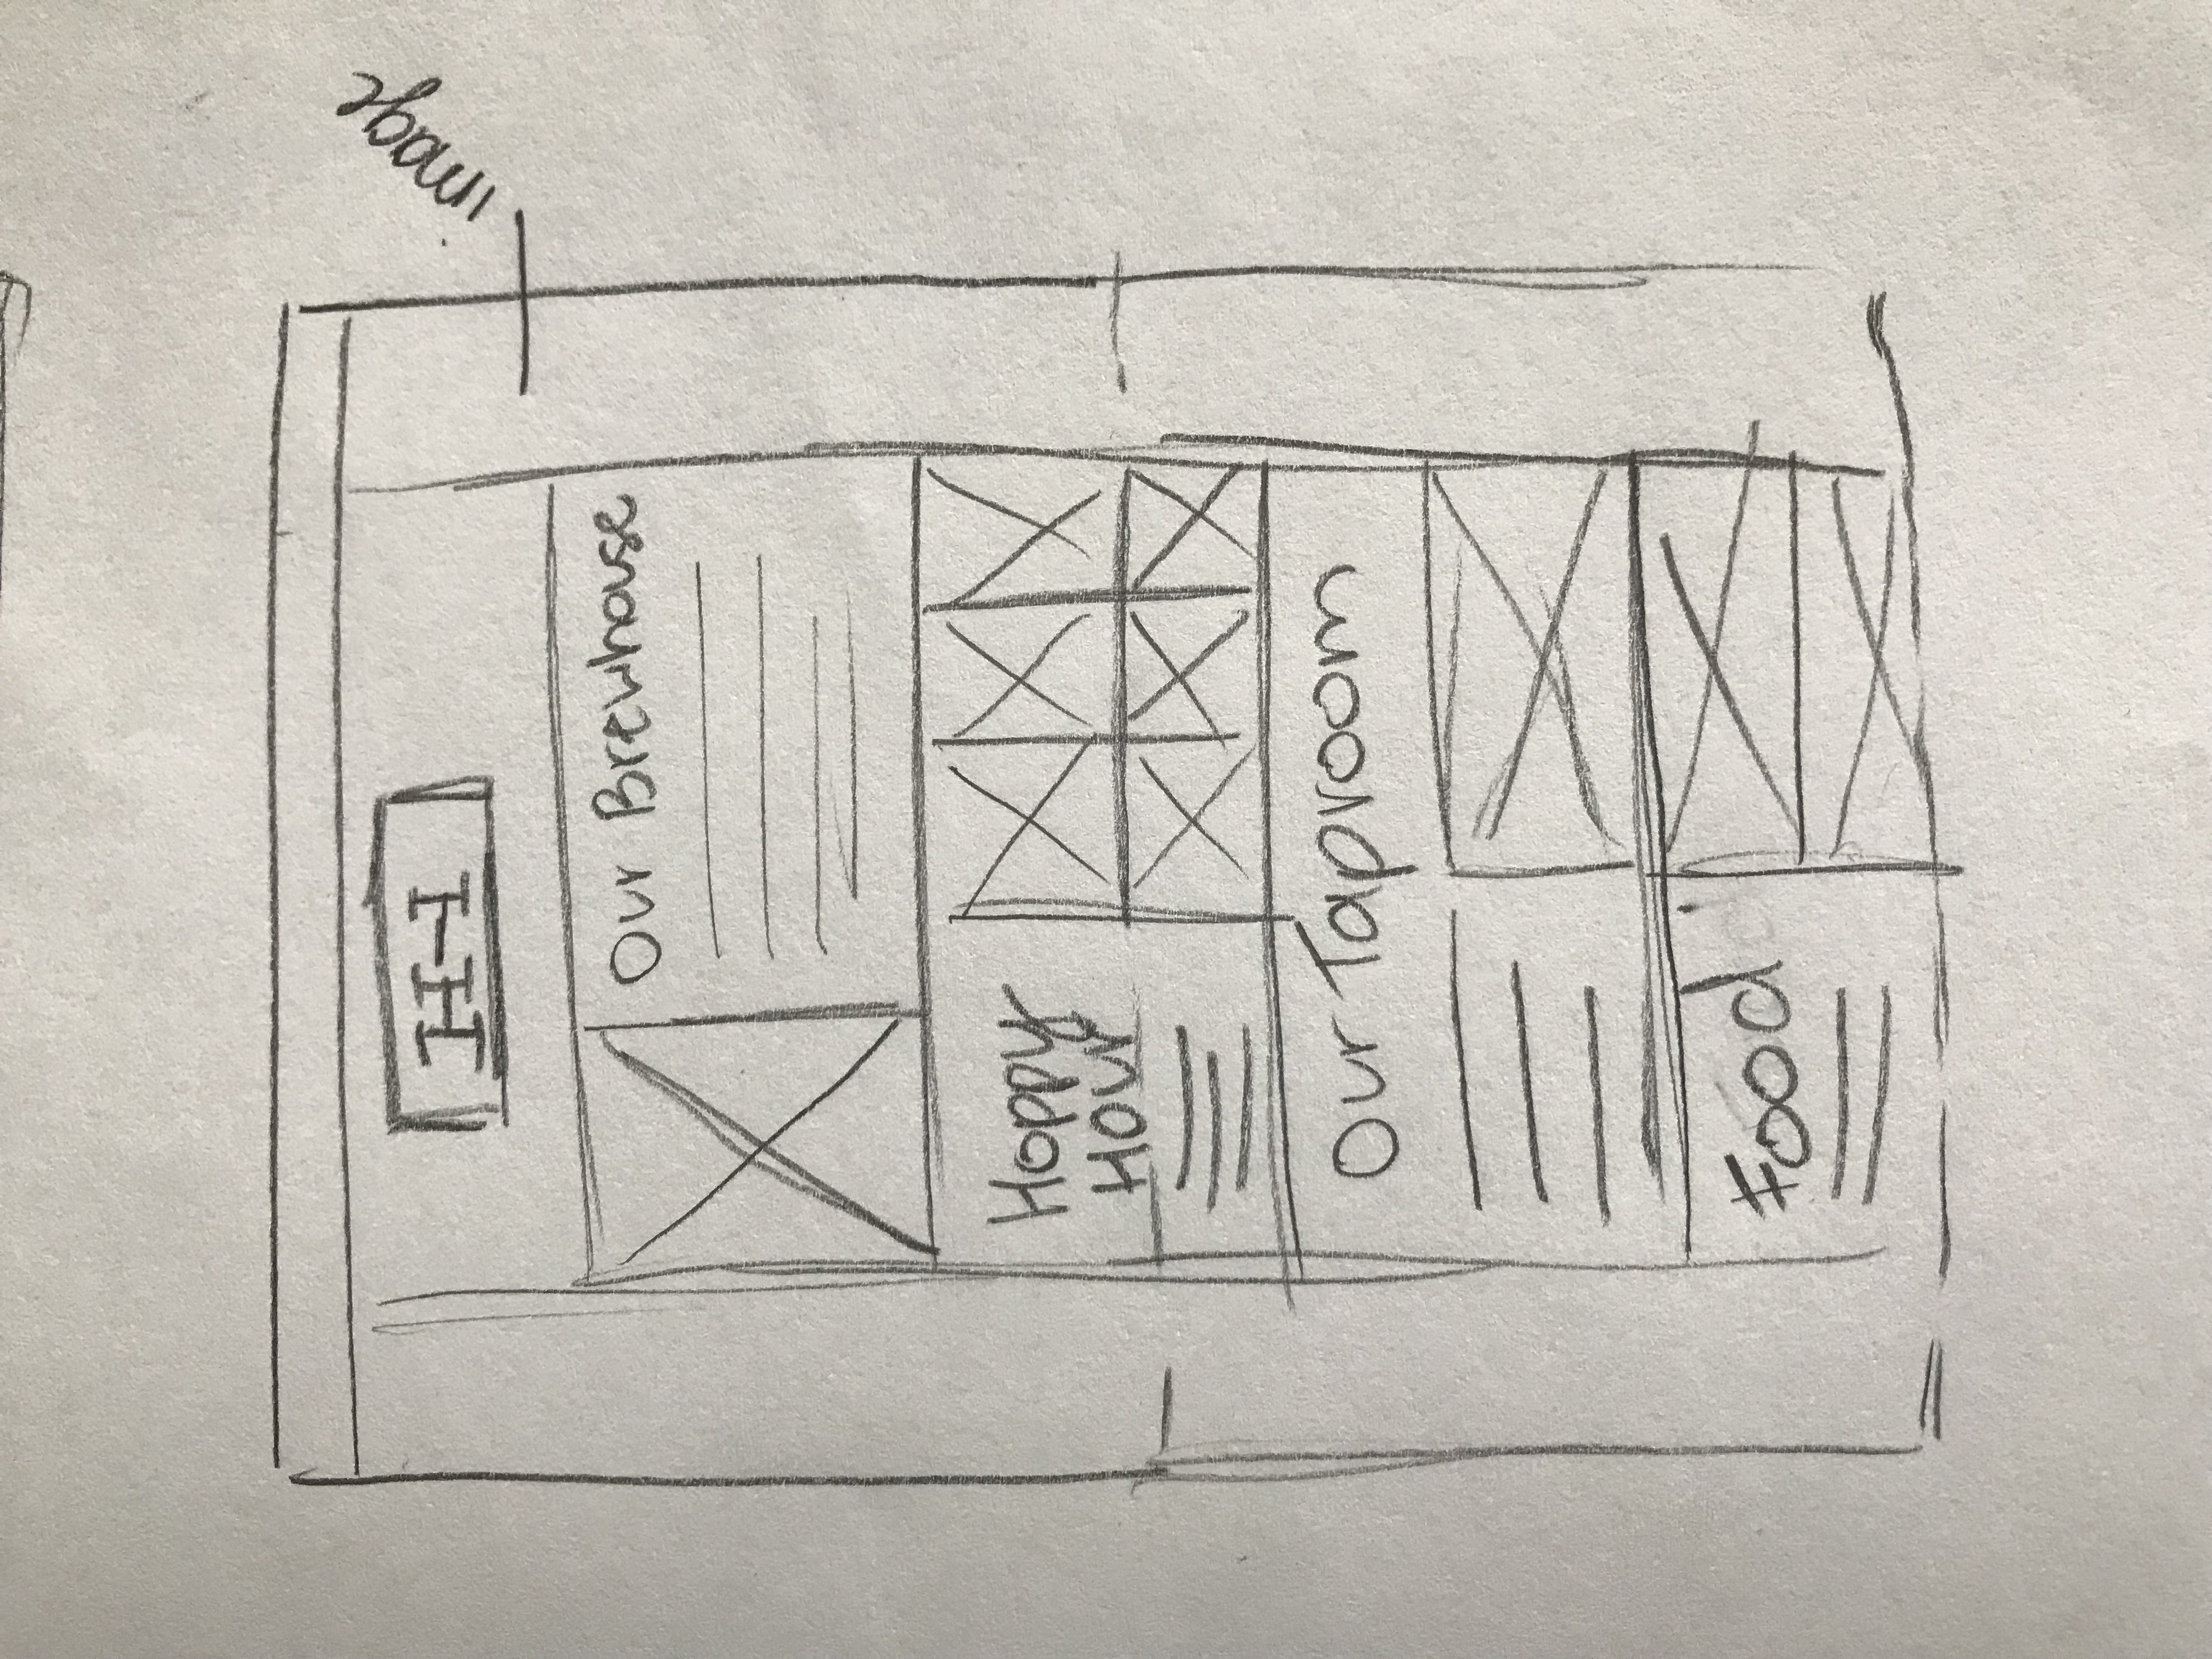 H-H
image
Our Brewhouse
Hoppy
Hour
Our Taproom
Food